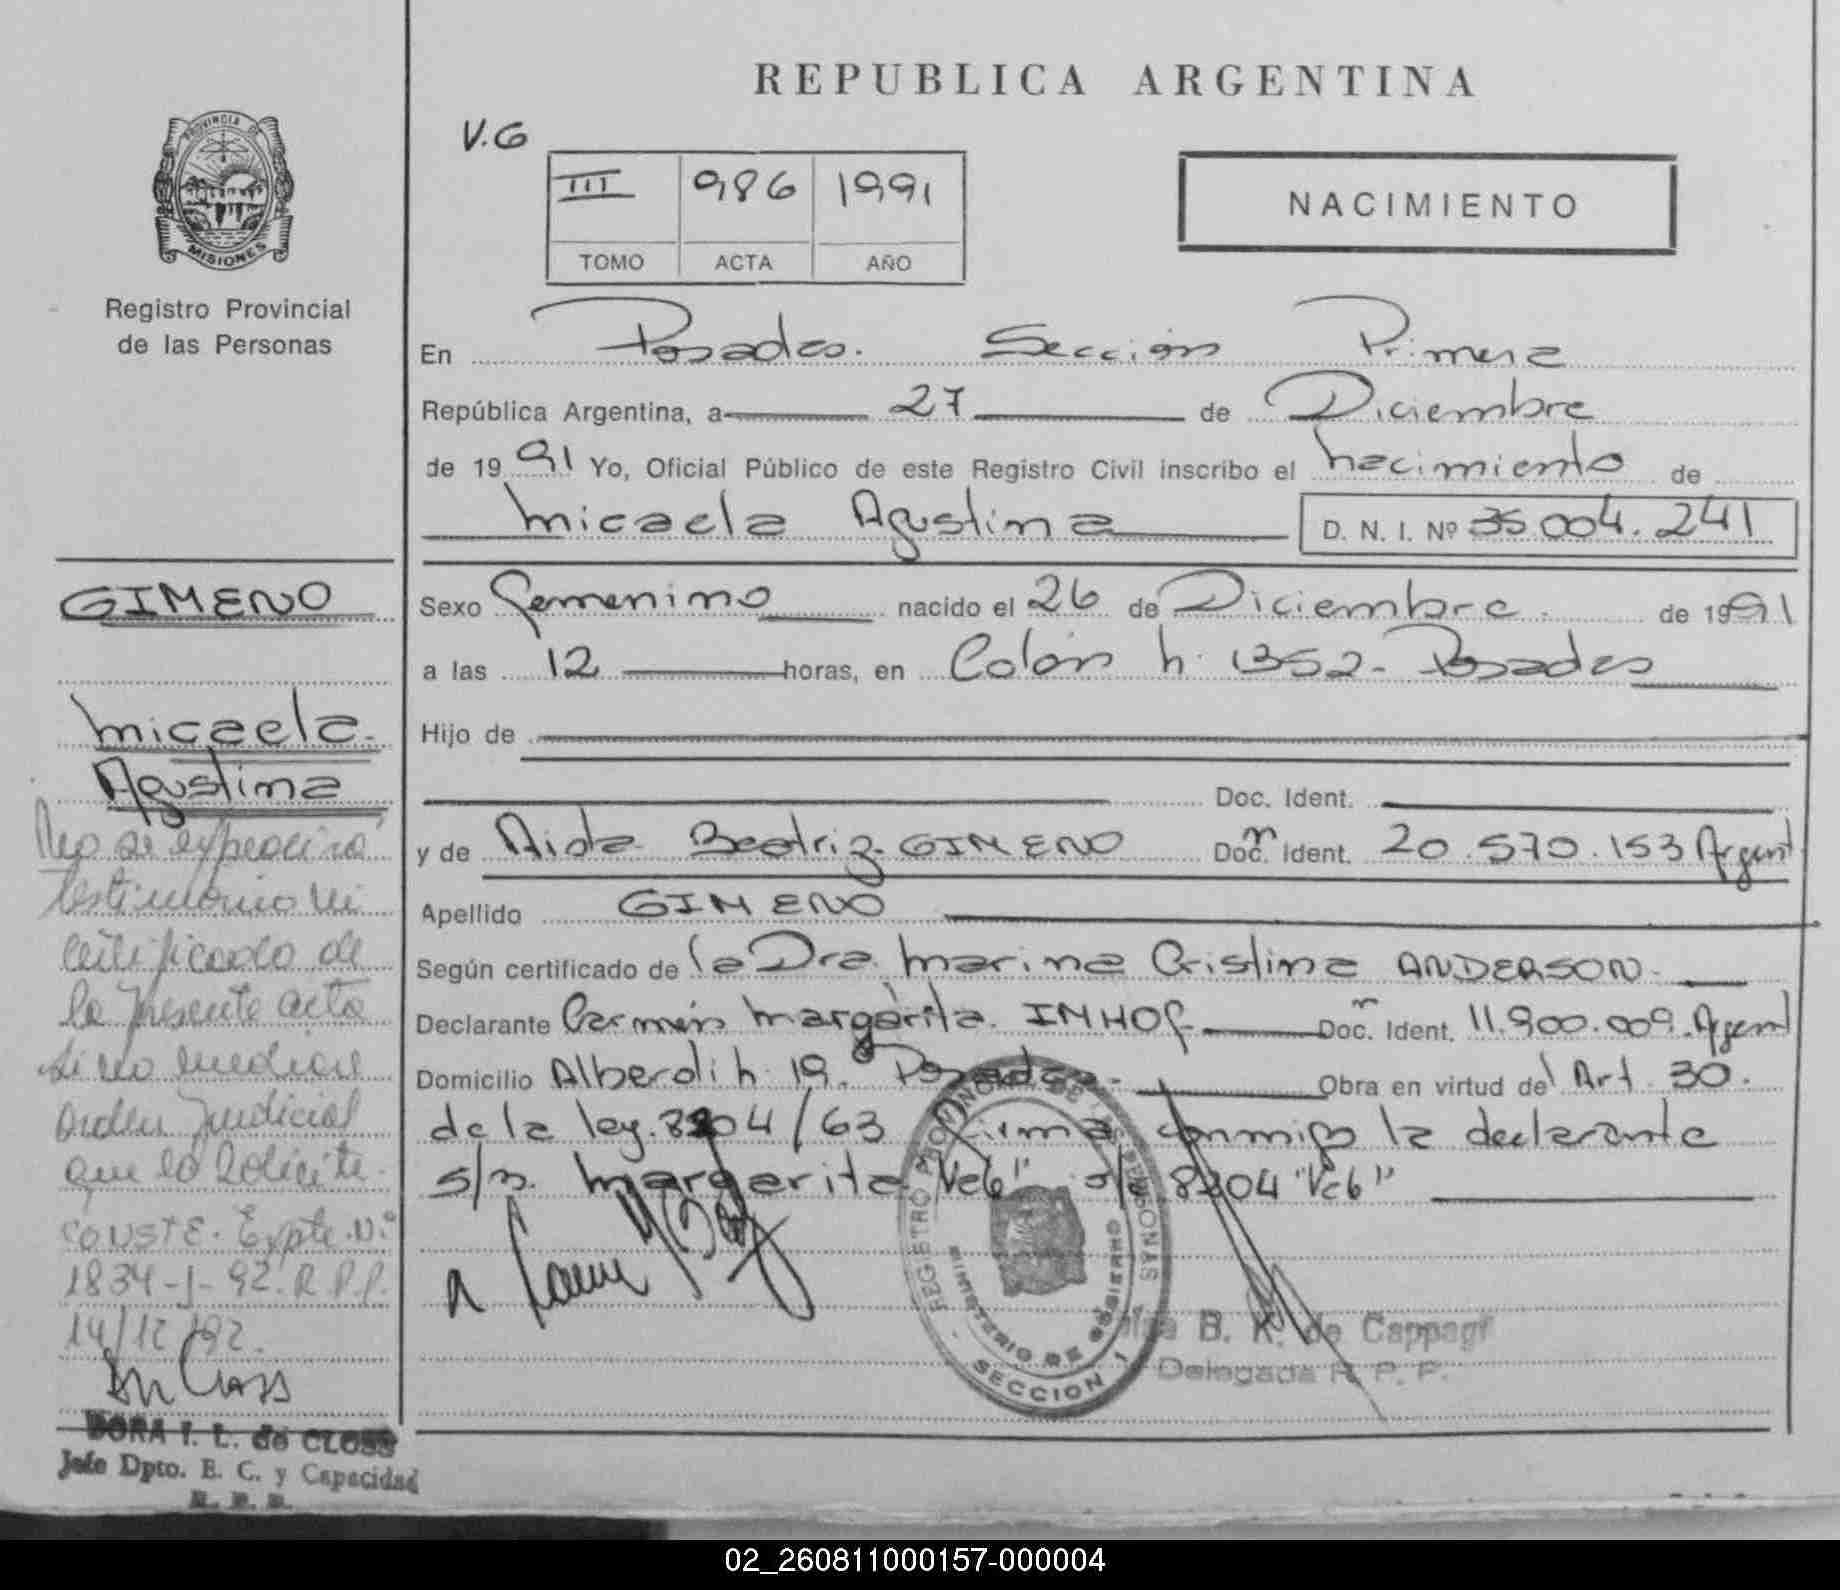 REPUBLICA ARGENTINA
V.G
III 986 1991
TOMO ACTA AÑO
NACIMIENTO
PROVINCIA DE
MISIONES
Registro Provincial
de las Personas
En Posadas. Sección Primera
República Argentina, a 27 de Diciembre
de 1991 Yo, Oficial Público de este Registro Civil inscribo el nacimiento de
Micaela Agustina D. N. I. Nº 35.004.241
GIMENO
Sexo femenino nacido el 26 de Diciembre. de 1991
a las 12 horas, en Colón n. 1352- Posadas
Micaela.
Agustina
Hijo de
Doc. Ident.
y de Aida Beatriz GIMENO Doc. Ident. 20.570.153 Argent
Apellido GIMENO
Según certificado de la Dra. Marina Cristina ANDERSON.
Declarante Carmen Margarita IMHOF Doc. Ident. 11.900.009. Argent
Domicilio Alberdi n. 19. Posadas. Obra en virtud del Art. 30.
de la ley. 8204/63 Firma conmigo la declarante
s/r. Margarita "Vc6" 8204 "Vc6"
No se expedirá
testimonio ni
certificado de
la presente acta
si no mediare
orden Judicial
que lo solicite.
CONSTE. Expte. Nº
1834-J-92. R.P.P.
14/12/92.
DORA I. L. de CLOSS
Jefe Dpto. E. C. y Capacidad
R. P. P.
REGISTRO PROVINCIAL DE LAS PERSONAS
MINISTERIO DE GOBIERNO
SECCION 1ª
B. K. de Cappagli
Delegada R. P. P.
02_260811000157-000004